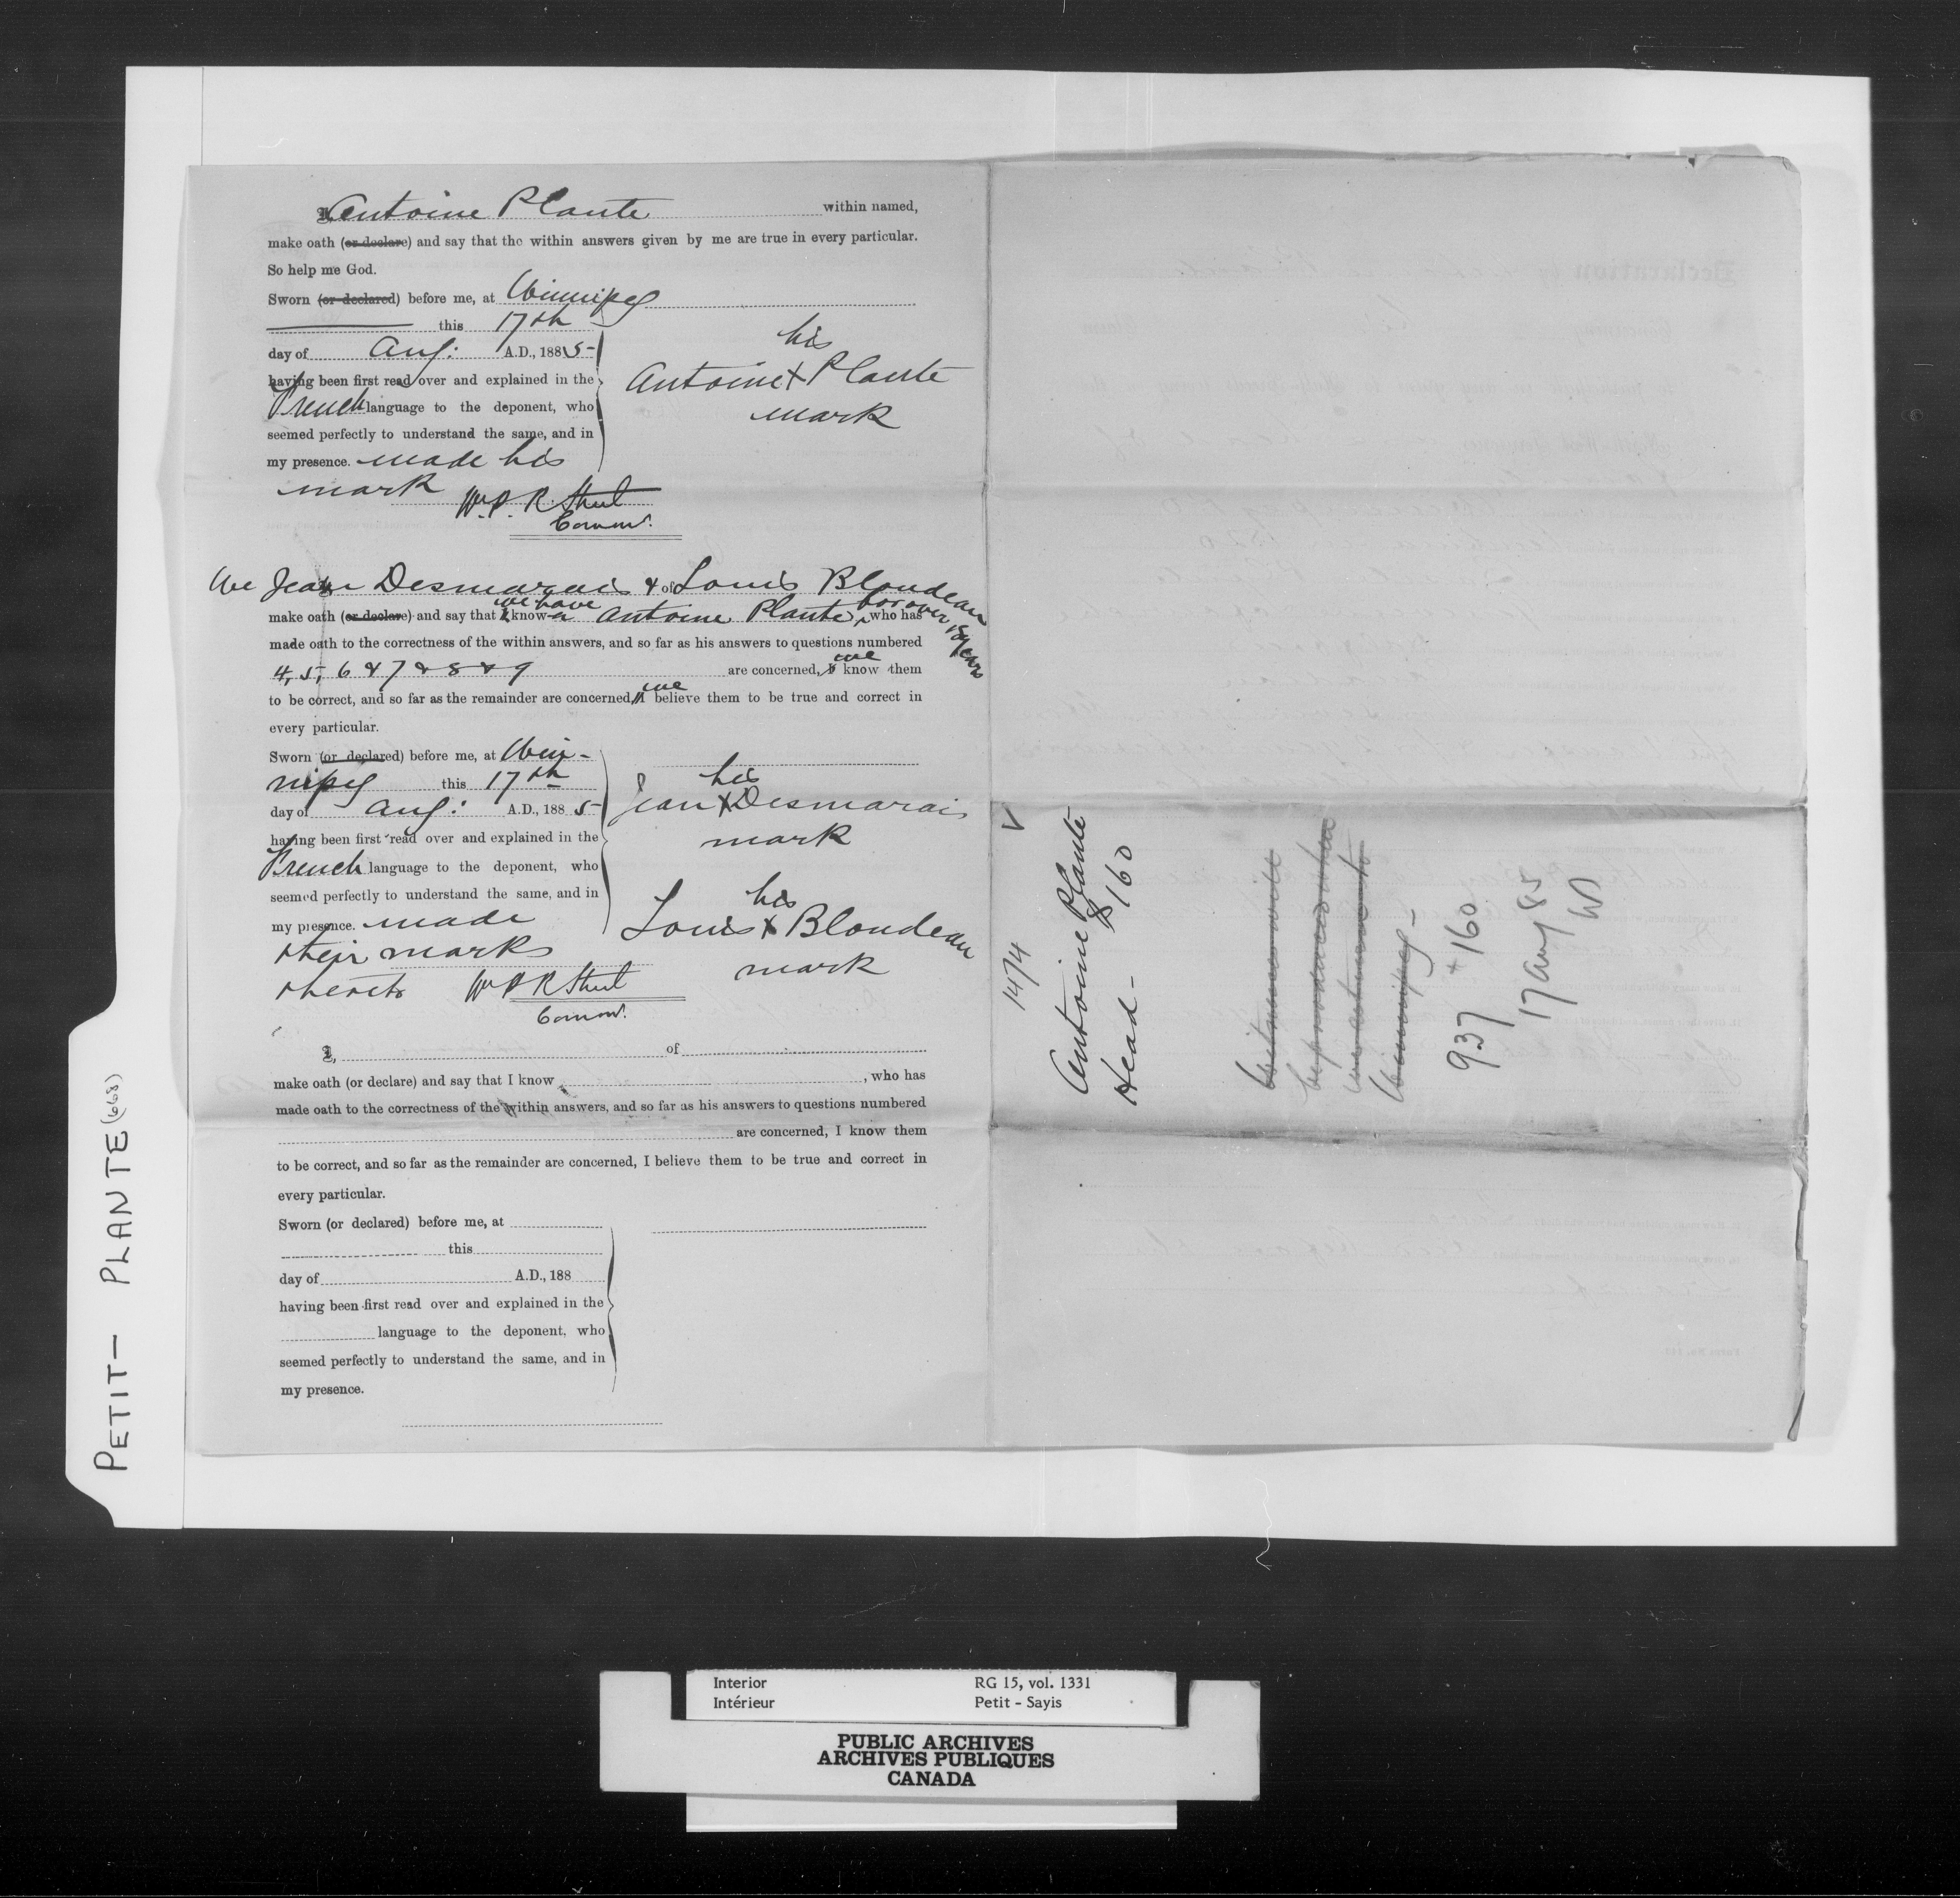 Antoine Plante within named,
make oath (or declare) and say that the within answers given by me are true in every particular.
So help me God.
Sworn (or declared) before me, at Winnipeg
this 17th
day of Aug: A.D., 1885
having been first read over and explained in the
French language to the deponent, who
seemed perfectly to understand the same, and in
my presence. made his
mark
his
Antoine X Plante
mark
Wm. P. R. Street
Commr.
We Jean Desmarais & of Louis Blondeau
make oath (or declare) and say that we have know Antoine Plante, for over 15 years who has
made oath to the correctness of the within answers, and so far as his answers to questions numbered
4, 5, 6 & 7 & 8 & 9 are concerned, I we know them
to be correct, and so far as the remainder are concerned, I we believe them to be true and correct in
every particular.
Sworn (or declared) before me, at Win-
nipeg this 17th
day of Aug: A.D., 1885
having been first read over and explained in the
French language to the deponent, who
seemed perfectly to understand the same, and in
my presence. made
their marks
thereto
his
Jean X Desmarais
mark
his
Louis X Blondeau
mark
Wm P R Street
Commr.
I, of
make oath (or declare) and say that I know , who has
made oath to the correctness of the within answers, and so far as his answers to questions numbered
are concerned, I know them
to be correct, and so far as the remainder are concerned, I believe them to be true and correct in
every particular.
Sworn (or declared) before me, at
this
day of A.D., 188
having been first read over and explained in the
language to the deponent, who
seemed perfectly to understand the same, and in
my presence.
1474
Antoine Plante
Head - $160
Witnesses will
be produced when
we return to
Winnipeg -
937 + 160
17 Aug 85
PETIT - PLANTE (668)
Interior RG 15, vol. 1331
Intérieur Petit - Sayis
PUBLIC ARCHIVES
ARCHIVES PUBLIQUES
CANADA